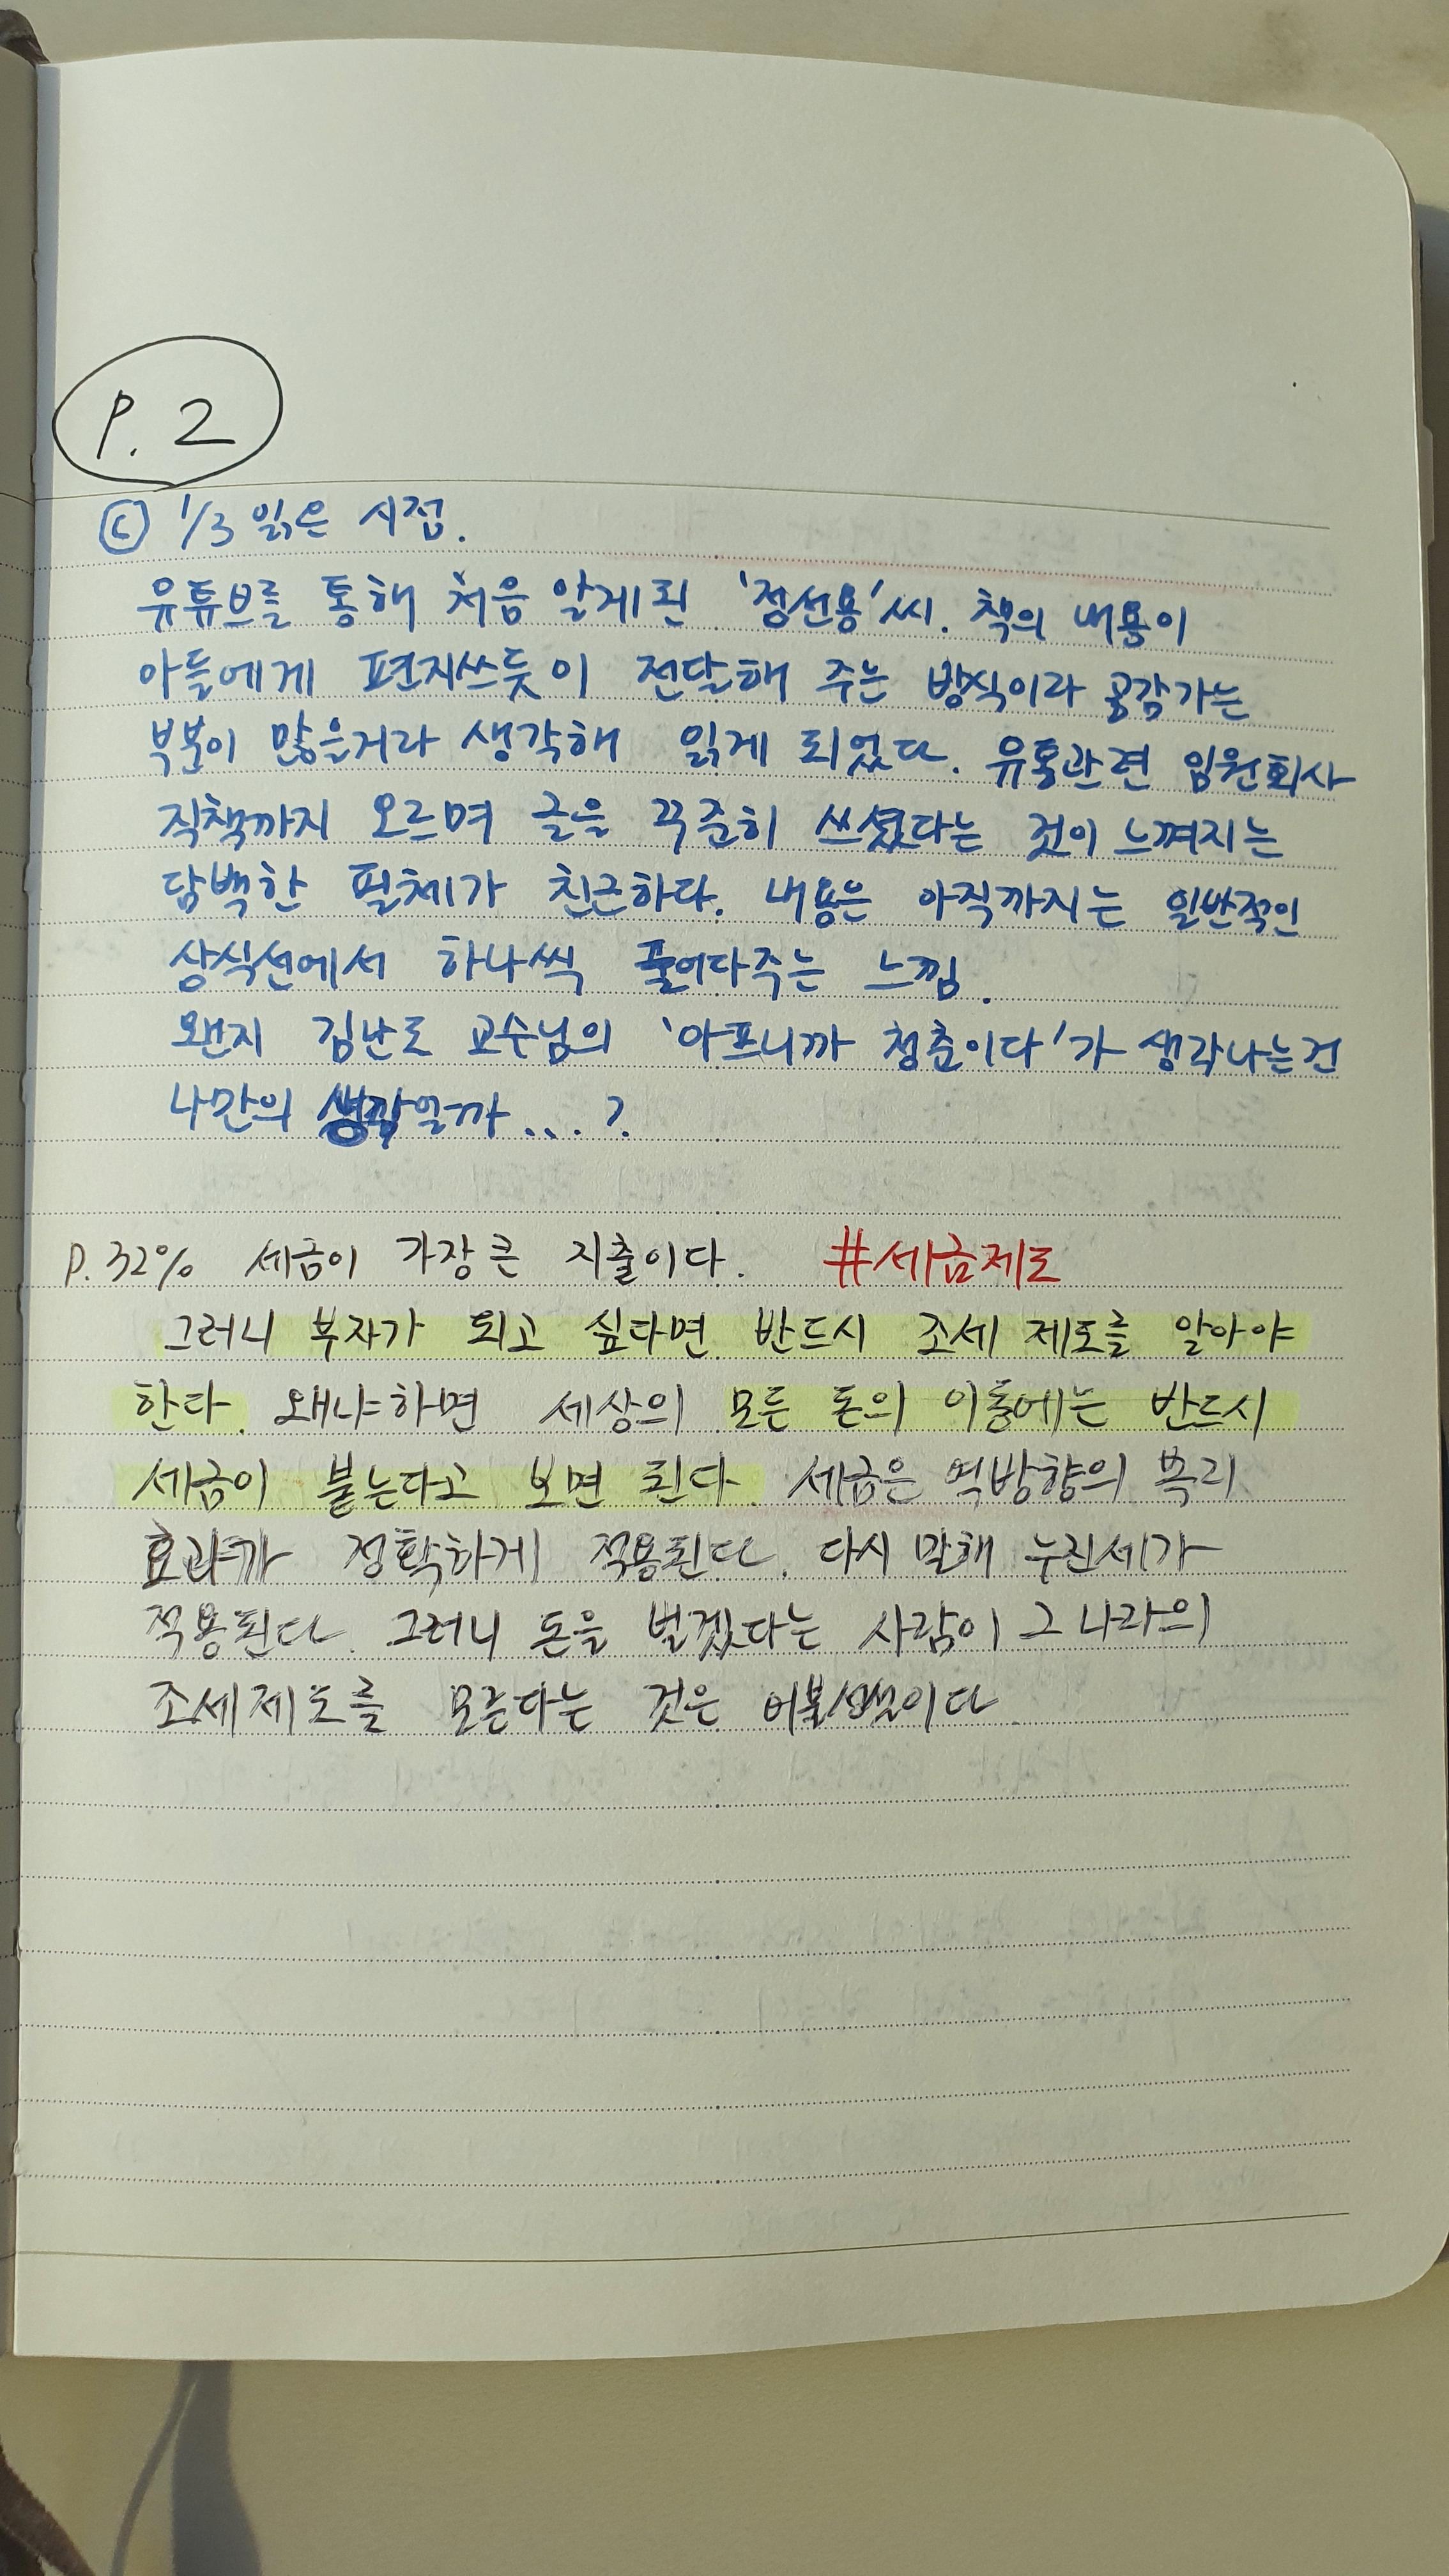 P. 2
ⓒ 1/3 읽은 시점.
유튜브를 통해 처음 알게된 '정선용'씨. 책의 내용이
아들에게 편지쓰듯이 전달해 주는 방식이라 공감가는
부분이 많을거라 생각해 읽게 되었다. 유통관련 임원회사
직책까지 오르며 글을 꾸준히 쓰셨다는 것이 느껴지는
담백한 필체가 친근하다. 내용은 아직까지는 일반적인
상식선에서 하나씩 풀어다주는 느낌.
왠지 김난도 교수님의 '아프니까 청춘이다'가 생각나는건
나만의 생각일까...?
P. 32% 세금이 가장 큰 지출이다. #세금제도
그러니 부자가 되고 싶다면 반드시 조세 제도를 알아야
한다. 왜냐하면 세상의 모든 돈의 이동에는 반드시
세금이 붙는다고 보면 된다. 세금은 역방향의 복리
효과가 정확하게 적용된다. 다시 말해 누진세가
적용된다. 그러니 돈을 벌겠다는 사람이 그 나라의
조세제도를 모른다는 것은 어불성설이다.